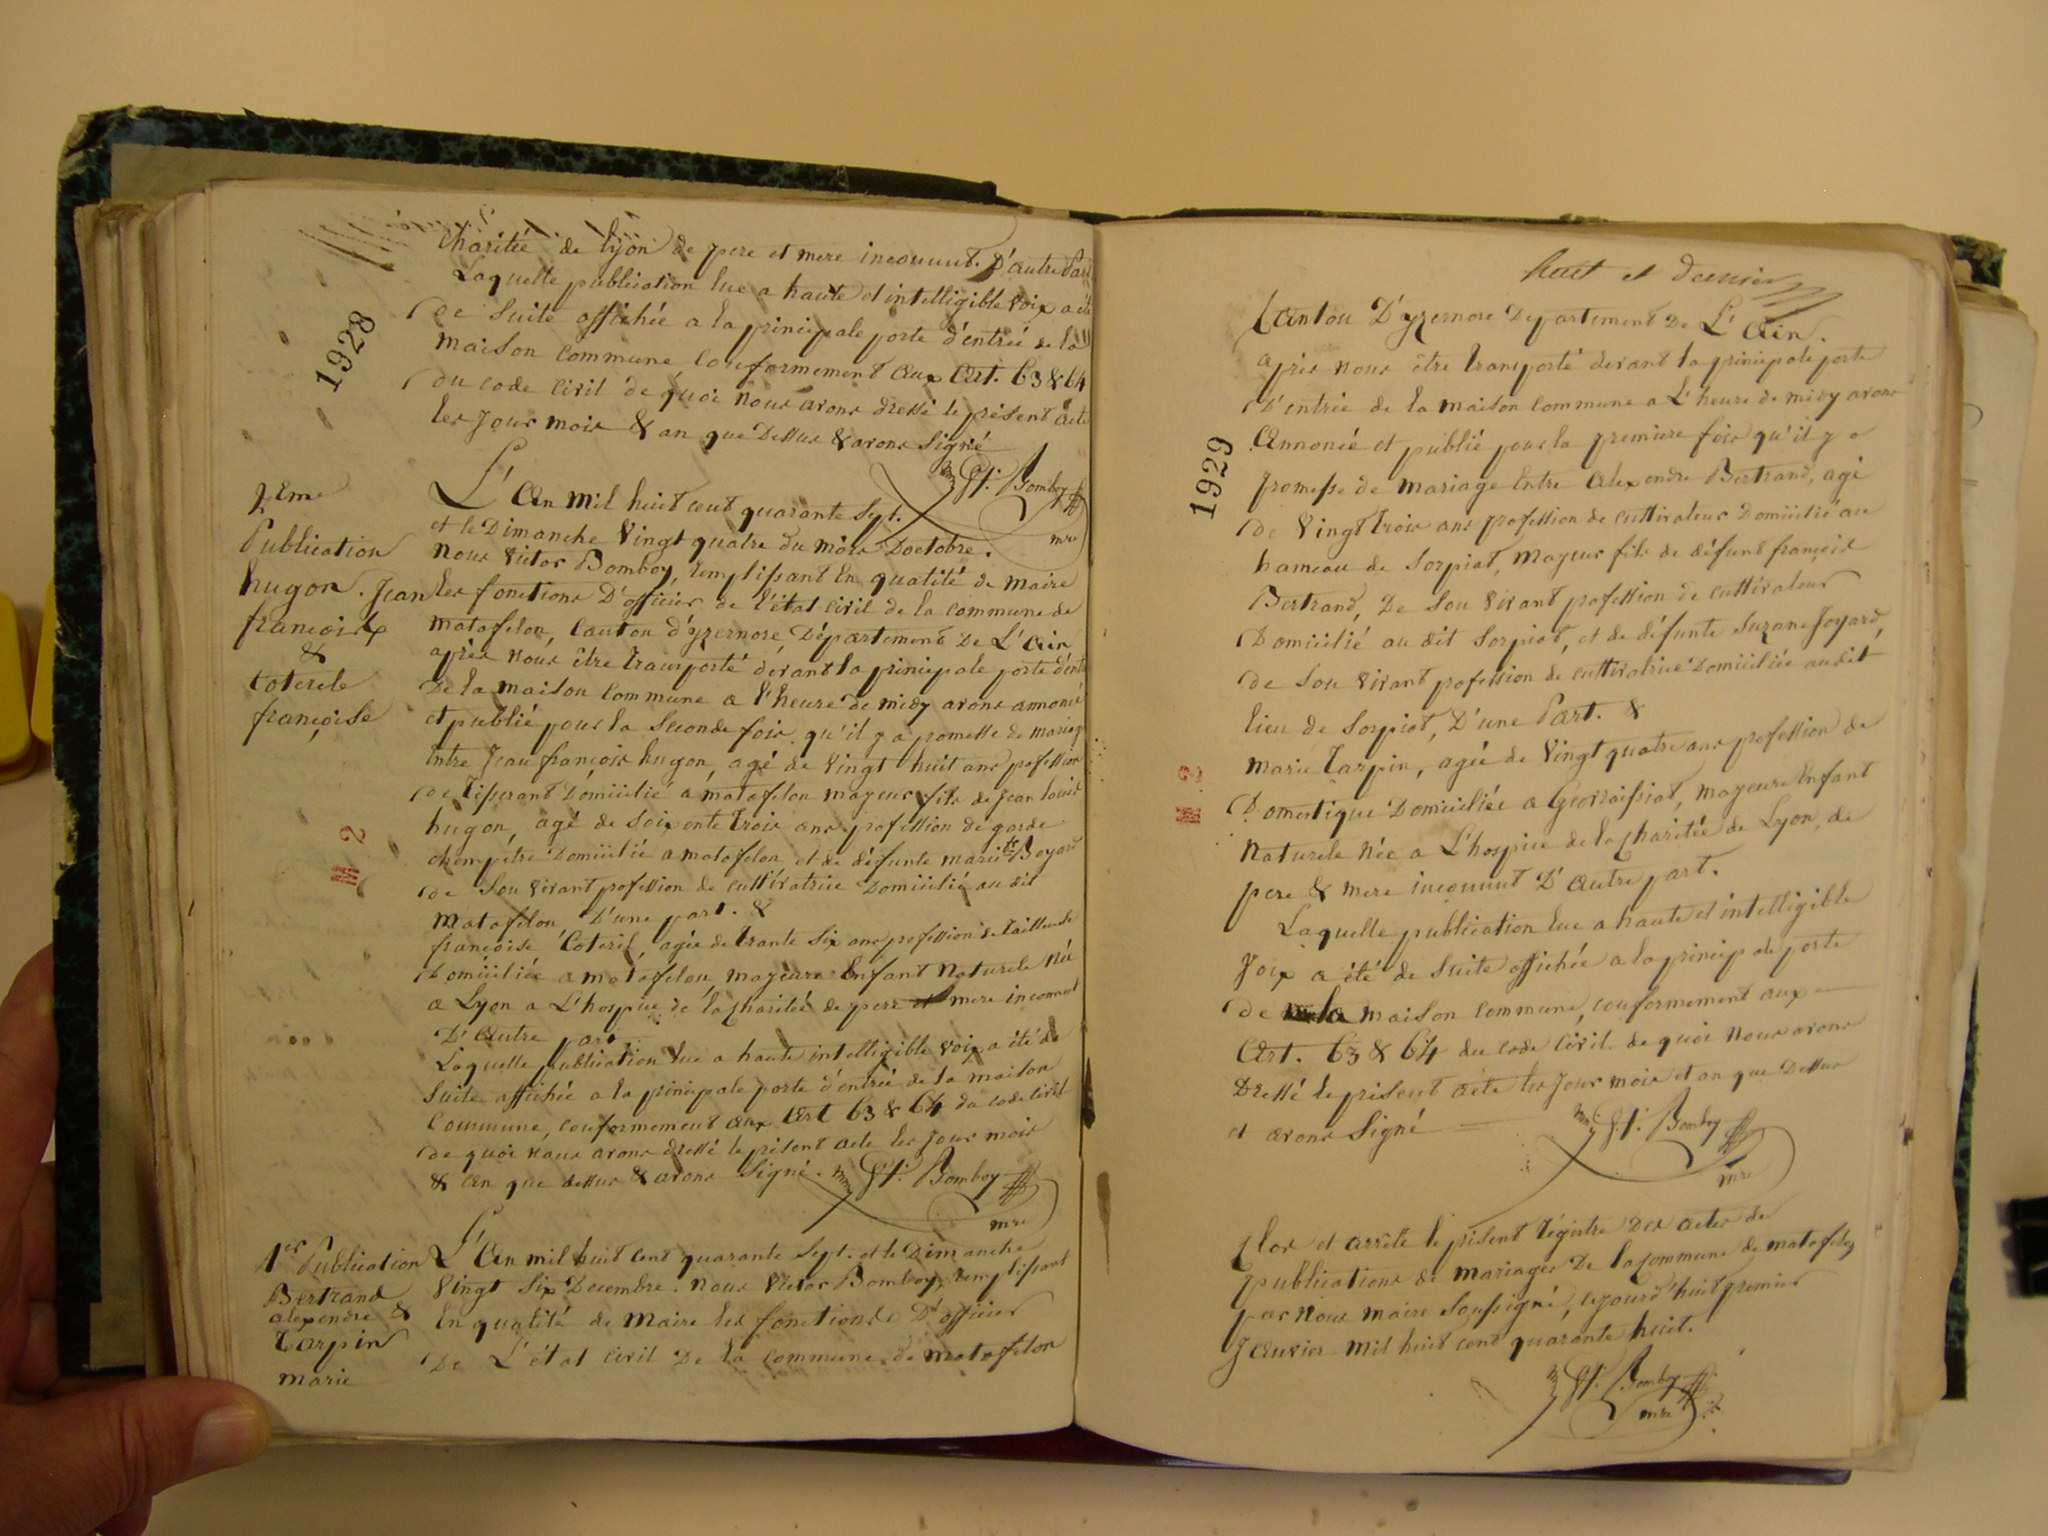 charitée de lyon de pere et mere inconnut. D'autre Part
Laquelle publication lue a haute et intelligible voix a été
de Suite affichée a la principale porte d'entrée de la
maison commune conformement aux Art. 63 & 64
du code civil de quoi nous avons dressé le présent acte
les jour mois & an que Dessus & avons Signé
Bomboy
mre
1928
2eme
Publication
hugon. Jean
françois
&
Coterele
françoise
L'An mil huit cent quarante Sept.
et le Dimanche Vingt quatre du mois Doctobre.
Nous Victor Bomboy, remplissant En qualité de maire
les fonctions D'officier de l'état civil de la commune de
matafelon, Canton d'yzernore, Département De L'Ain
après nous être transporté devant la principale porte d'ent
De la maison Commune a l'heure de midy avons annoncé
et publié pour la Seconde fois qu'il y a promesse de mariag
Entre Jean françois hugon, agé de Vingt huit ans profession
de Tisserant Domicilié a matafelon mayeur fils de Jean louis
hugon, agé de Soixente trois ans profession de garde
chempêtre Domicilié a matafelon et de défunte marie Boyard
de Son vivant profession de cultivatrice Domicilié au dit
Matafelon D'une part. &
françoise Coteril, agée de trante Six ans profession de Tailleuse
Domiciliée a matafelon, mayeure Enfant Naturele Née
a Lyon a L'hospice de la charitée de pere et mere inconnut
D'Autre part.
Laquelle publication lue a haute intelligible voix a été de
Suite affichée a la principale porte d'entrée de la maison
Commune, conformement aux Art 63 & 64 du code civil
de quoi nous avons dressé le présent acte les Jour mois
& an que dessus & avons Signé.
Bomboy
mre
M 2
1er Publication
Bertrand
alexendre &
Tarpin
marie
L'An mil huit cent quarante Sept. et le Dimanche
Vingt Six Decembre. Nous Victor Bomboy, remplissant
En qualité de Maire les fonctions D'officier
De L'état Civil De la commune de matafelon
huit et dernier
Canton D'yzernore Departement De L'Ain.
après nous être transporté devant la principale porte
D'entrée de la maison Commune a L'heure de midy avons
Annoncé et publié pour la premiere fois qu'il y a
promesse de mariage Entre Alexendre Bertrand, agé
de Vingt trois ans profession de cultivateur Domicilié au
hameau de Sorpiat, mayeur fils de défunt françois
Bertrand, De Son vivant profession de cultivateur
Domicilié au dit Sorpiat, et de défunte Suzane Joyard,
de Son vivant profession de cultivatrice Domiciliée audit
lieu de Sorpiat, D'une Part. &
marie Tarpin, agée de Vingt quatre ans profession de
Domestique Domiciliée a Géovraissiat, mayeure Enfant
Naturele Née a L'hospice de la charitée de Lyon, de
pere & mere inconnut D'Autre part.
Laquelle publication lue a haute et intelligible
Voix a été de Suite affichée a la principale porte
de la maison commune, conformement aux
Art. 63 & 64 du code Civil. de quoi nous avons
Dressé le présent acte les Jour mois et an que Dessus
et avons Signé
Bomboy
mre
1929
M 2
Clos et arrêté le présent régistre Des actes de
publications de mariages De la Commune de matafelon
par Nous maire Soussigné, cejourd'huit premier
Janvier mil huit cent quarante huit.
Bomboy
mre